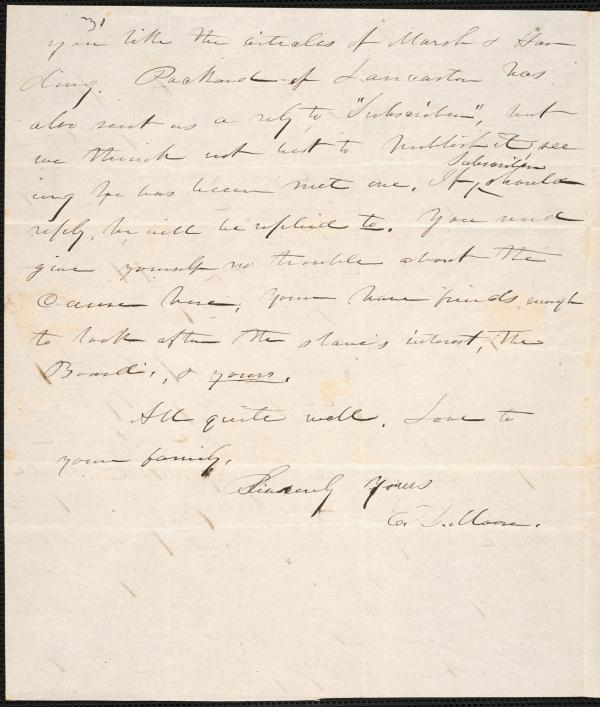 31
you like the articles of Marsh & Har
ding. Packard of Lancaster has
also sent us a reply to "Subscriber", but
we think not best to publish it, see
ing he has been met once. If Subscriber should
reply, he will be replied to. You need
give yourself no trouble about the
Cause here, Your have friends enough
to look after the slave's interest, the
Board's, & yours.
All quite well. Love to
your family.
Sincerely Yours
E. D. Moore.